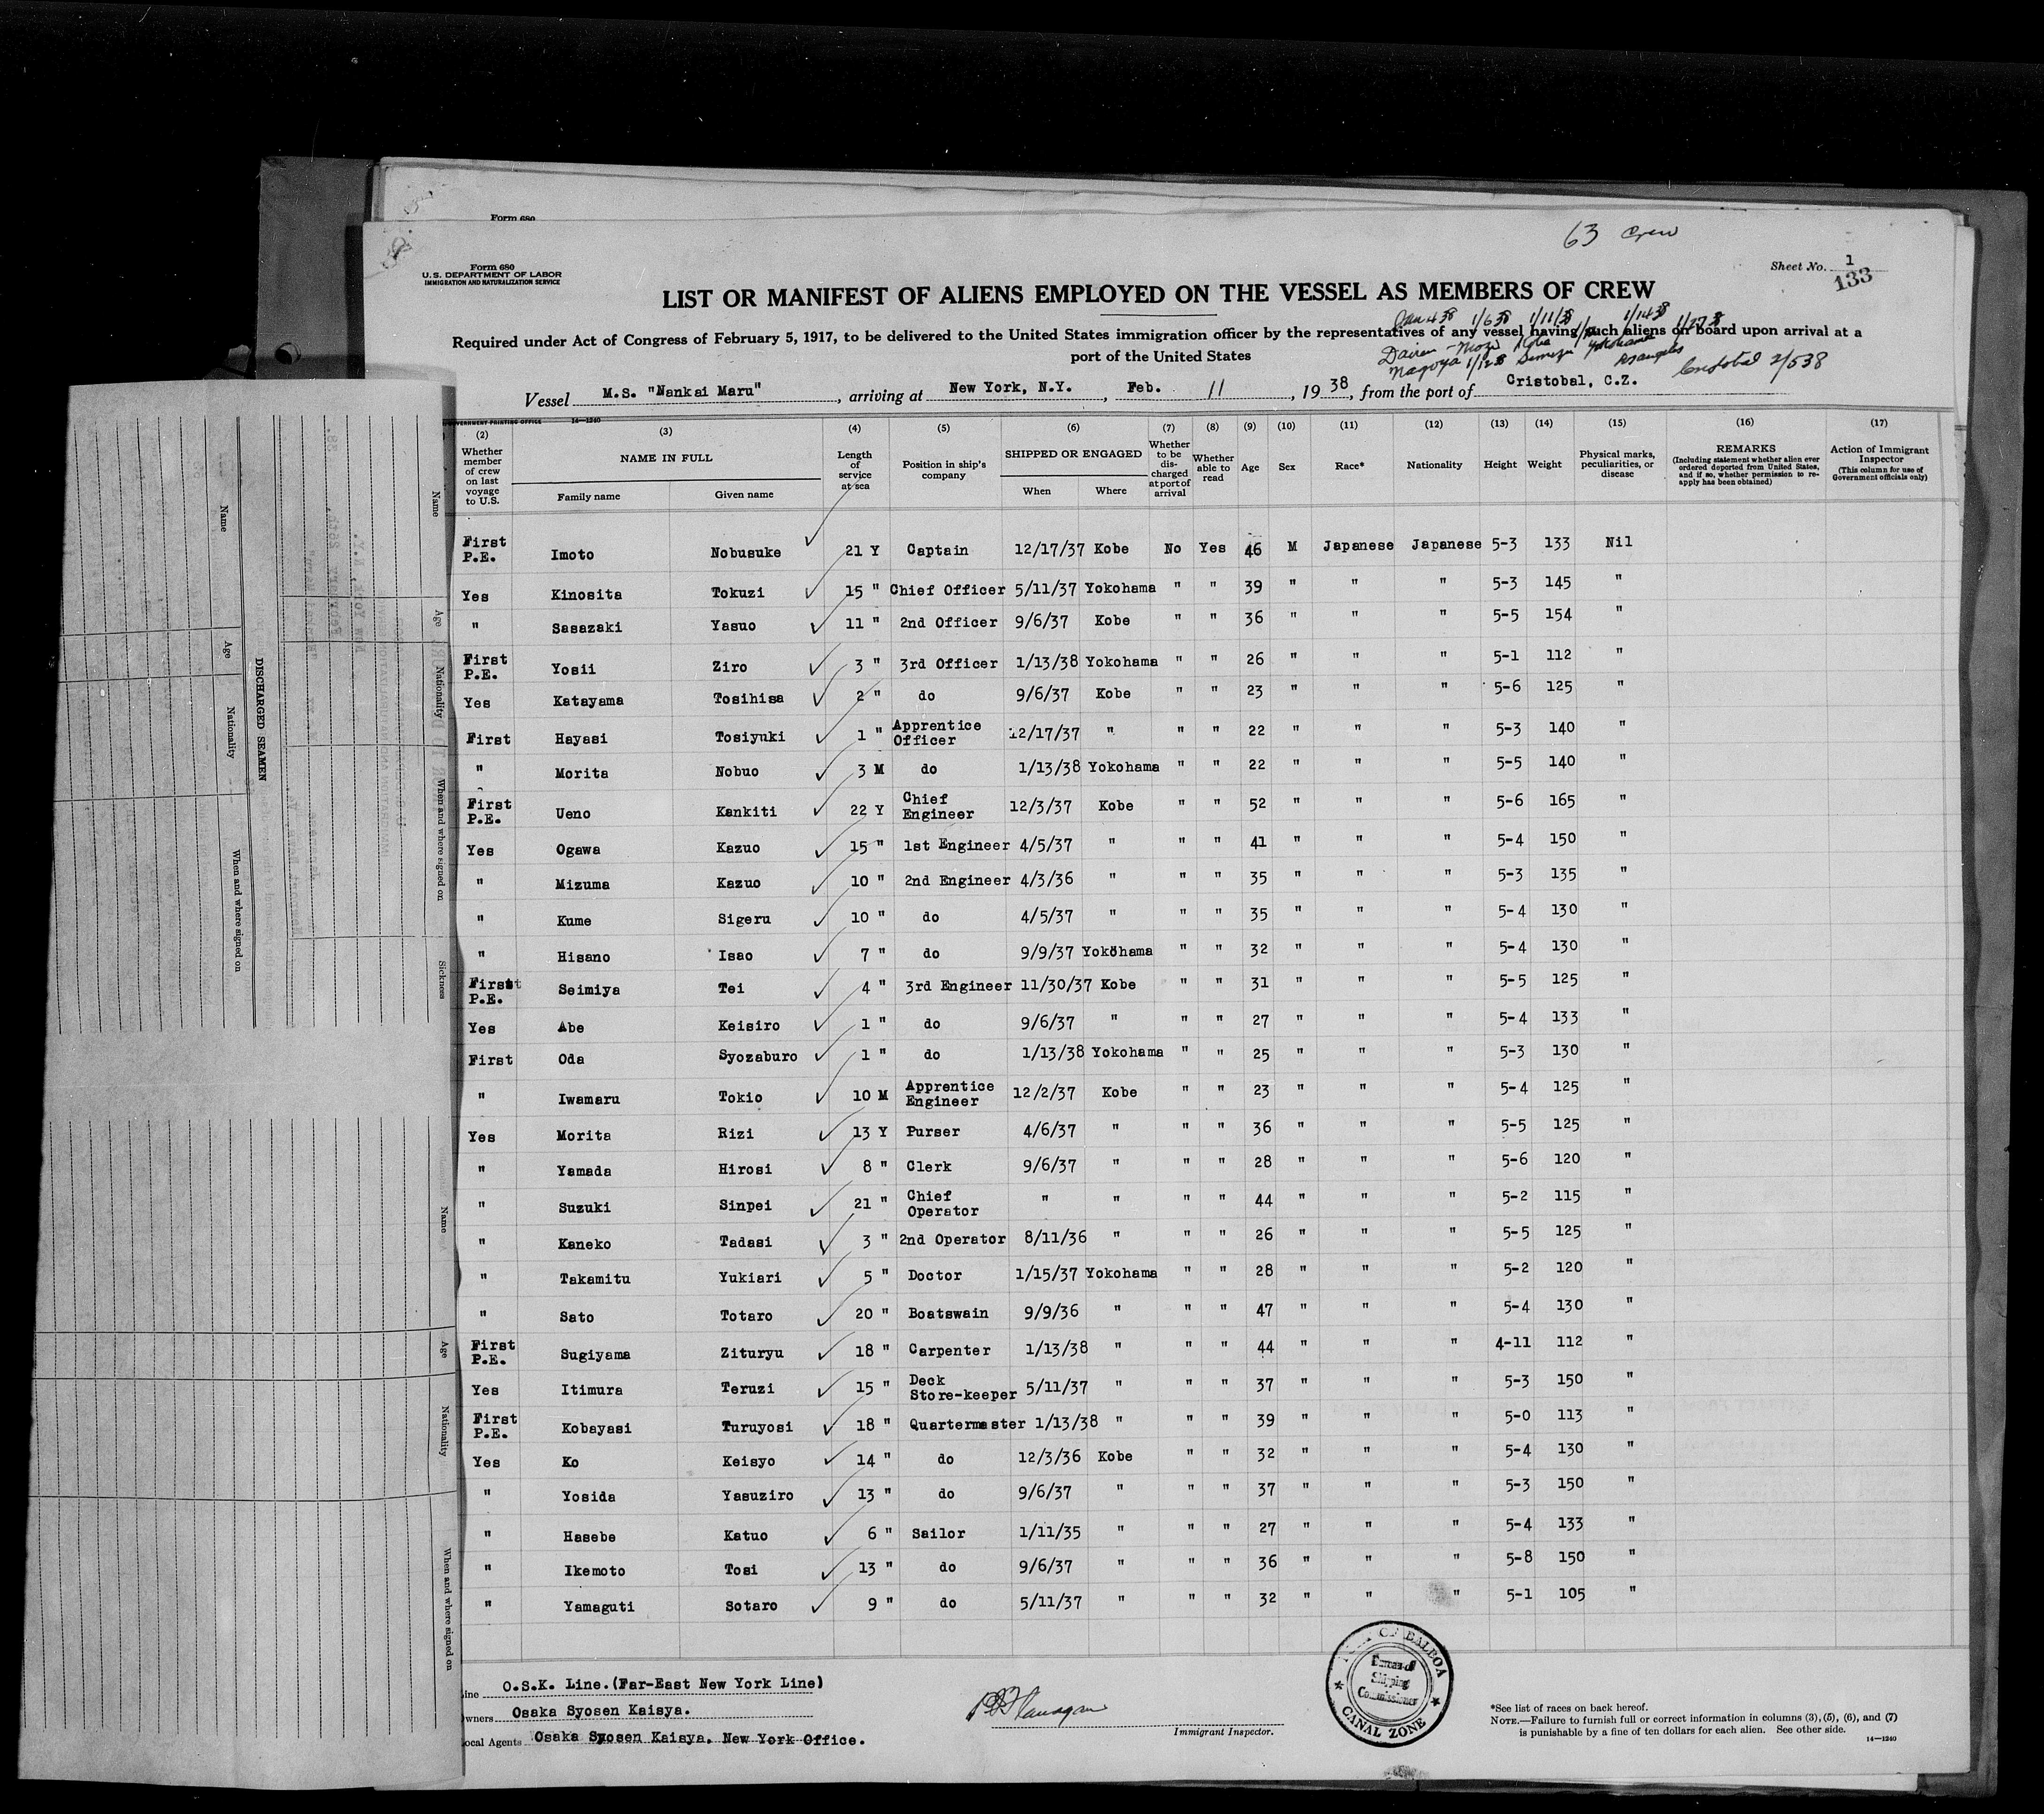 Form 680
63 Crew
Form 680
U.S. DEPARTMENT OF LABOR
IMMIGRATION AND NATURALIZATION SERVICE
Sheet No. 1
133
LIST OR MANIFEST OF ALIENS EMPLOYED ON THE VESSEL AS MEMBERS OF CREW
Required under Act of Congress of February 5, 1917, to be delivered to the United States immigration officer by the representatives of any vessel having such aliens on board upon arrival at a
port of the United States
Jan 4 38 1/6 38 1/11/38 1/14 38 1/27 38
Dairen - Moji Kobe Yokohama
Nagoya 1/12 38 Los Angeles Cristobal 2/5 38
Vessel M.S. "Nankai Maru", arriving at New York, N.Y., Feb. 11, 1938, from the port of Cristobal, C.Z.
GOVERNMENT PRINTING OFFICE 14—1240
(2) (3) (4) (5) (6) (7) (8) (9) (10) (11) (12) (13) (14) (15) (16) (17)
Whether member of crew on last voyage to U.S. NAME IN FULL Family name Given name Length of service at sea Position in ship's company SHIPPED OR ENGAGED When Where Whether to be discharged at port of arrival Whether able to read Age Sex Race* Nationality Height Weight Physical marks, peculiarities, or disease REMARKS (Including statement whether alien ever ordered deported from United States, and if so, whether permission to re-apply has been obtained) Action of Immigrant Inspector (This column for use of Government officials only)
First P.E. Imoto Nobusuke 21 Y Captain 12/17/37 Kobe No Yes 46 M Japanese Japanese 5-3 133 Nil
Yes Kinosita Tokuzi 15 " Chief Officer 5/11/37 Yokohama " " 39 " " " 5-3 145 "
" Sasazaki Yasuo 11 " 2nd Officer 9/6/37 Kobe " " 36 " " " 5-5 154 "
First P.E. Yosii Ziro 3 " 3rd Officer 1/13/38 Yokohama " " 26 " " " 5-1 112 "
Yes Katayama Tosihisa 2 " do 9/6/37 Kobe " " 23 " " " 5-6 125 "
First Hayasi Tosiyuki 1 " Apprentice Officer 12/17/37 " " " 22 " " " 5-3 140 "
" Morita Nobuo 3 M do 1/13/38 Yokohama " " 22 " " " 5-5 140 "
First P.E. Ueno Kankiti 22 Y Chief Engineer 12/3/37 Kobe " " 52 " " " 5-6 165 "
Yes Ogawa Kazuo 15 " 1st Engineer 4/5/37 " " " 41 " " " 5-4 150 "
" Mizuma Kazuo 10 " 2nd Engineer 4/3/36 " " " 35 " " " 5-3 135 "
" Kume Sigeru 10 " do 4/5/37 " " " 35 " " " 5-4 130 "
" Hisano Isao 7 " do 9/9/37 Yokohama " " 32 " " " 5-4 130 "
First P.E. Seimiya Tei 4 " 3rd Engineer 11/30/37 Kobe " " 31 " " " 5-5 125 "
Yes Abe Keisiro 1 " do 9/6/37 " " " 27 " " " 5-4 133 "
First Oda Syozaburo 1 " do 1/13/38 Yokohama " " 25 " " " 5-3 130 "
" Iwamaru Tokio 10 M Apprentice Engineer 12/2/37 Kobe " " 23 " " " 5-4 125 "
Yes Morita Rizi 13 Y Purser 4/6/37 " " " 36 " " " 5-5 125 "
" Yamada Hirosi 8 " Clerk 9/6/37 " " " 28 " " " 5-6 120 "
" Suzuki Sinpei 21 " Chief Operator " " " " 44 " " " 5-2 115 "
" Kaneko Tadasi 3 " 2nd Operator 8/11/36 " " " 26 " " " 5-5 125 "
" Takamitu Yukiari 5 " Doctor 1/15/37 Yokohama " " 28 " " " 5-2 120 "
" Sato Totaro 20 " Boatswain 9/9/36 " " " 47 " " " 5-4 130 "
First P.E. Sugiyama Zituryu 18 " Carpenter 1/13/38 " " " 44 " " " 4-11 112 "
Yes Itimura Teruzi 15 " Deck Store-keeper 5/11/37 " " " 37 " " " 5-3 150 "
First P.E. Kobayasi Turuyosi 18 " Quartermaster 1/13/38 " " " 39 " " " 5-0 113 "
Yes Ko Keisyo 14 " do 12/3/36 Kobe " " 32 " " " 5-4 130 "
" Yosida Yasuziro 13 " do 9/6/37 " " " 37 " " " 5-3 150 "
" Hasebe Katuo 6 " Sailor 1/11/35 " " " 27 " " " 5-4 133 "
" Ikemoto Tosi 13 " do 9/6/37 " " " 36 " " " 5-8 150 "
" Yamaguti Sotaro 9 " do 5/11/37 " " " 32 " " " 5-1 105 "
Line O.S.K. Line.(Far-East New York Line)
Owners Osaka Syosen Kaisya.
Local Agents Osaka Syosen Kaisya. New York Office.
Immigrant Inspector.
PORT OF BALBOA
Bureau of
Shipping
Commissioner
CANAL ZONE
*See list of races on back hereof.
NOTE.—Failure to furnish full or correct information in columns (3), (5), (6), and (7)
is punishable by a fine of ten dollars for each alien. See other side.
14—1240
DISCHARGED SEAMEN
Name Age Nationality When and where signed on
Name Age Nationality When and where signed on Sickness
Name Age Nationality When and where signed on